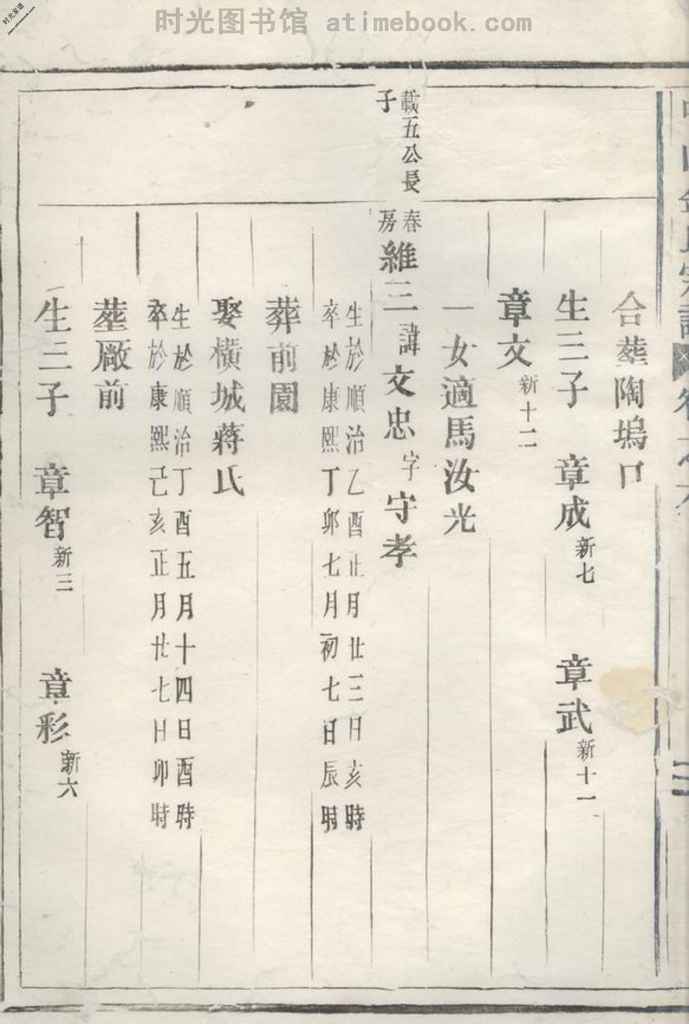 时光图书馆 atimebook.com
时光家谱
合塟陶塢口
生三子 章成新七 章武新十一
章文新十二
一女適馬汝光
載五公長子
春房維三諱文忠字守孝
生於順治乙酉正月廿三日亥時
卒於康熙丁卯七月初七日辰時
葬前園
娶橫城蔣氏
生於順治丁酉五月十四日酉時
卒於康熙己亥正月廿七日卯時
塟厰前
生三子 章智新三 章彩新六